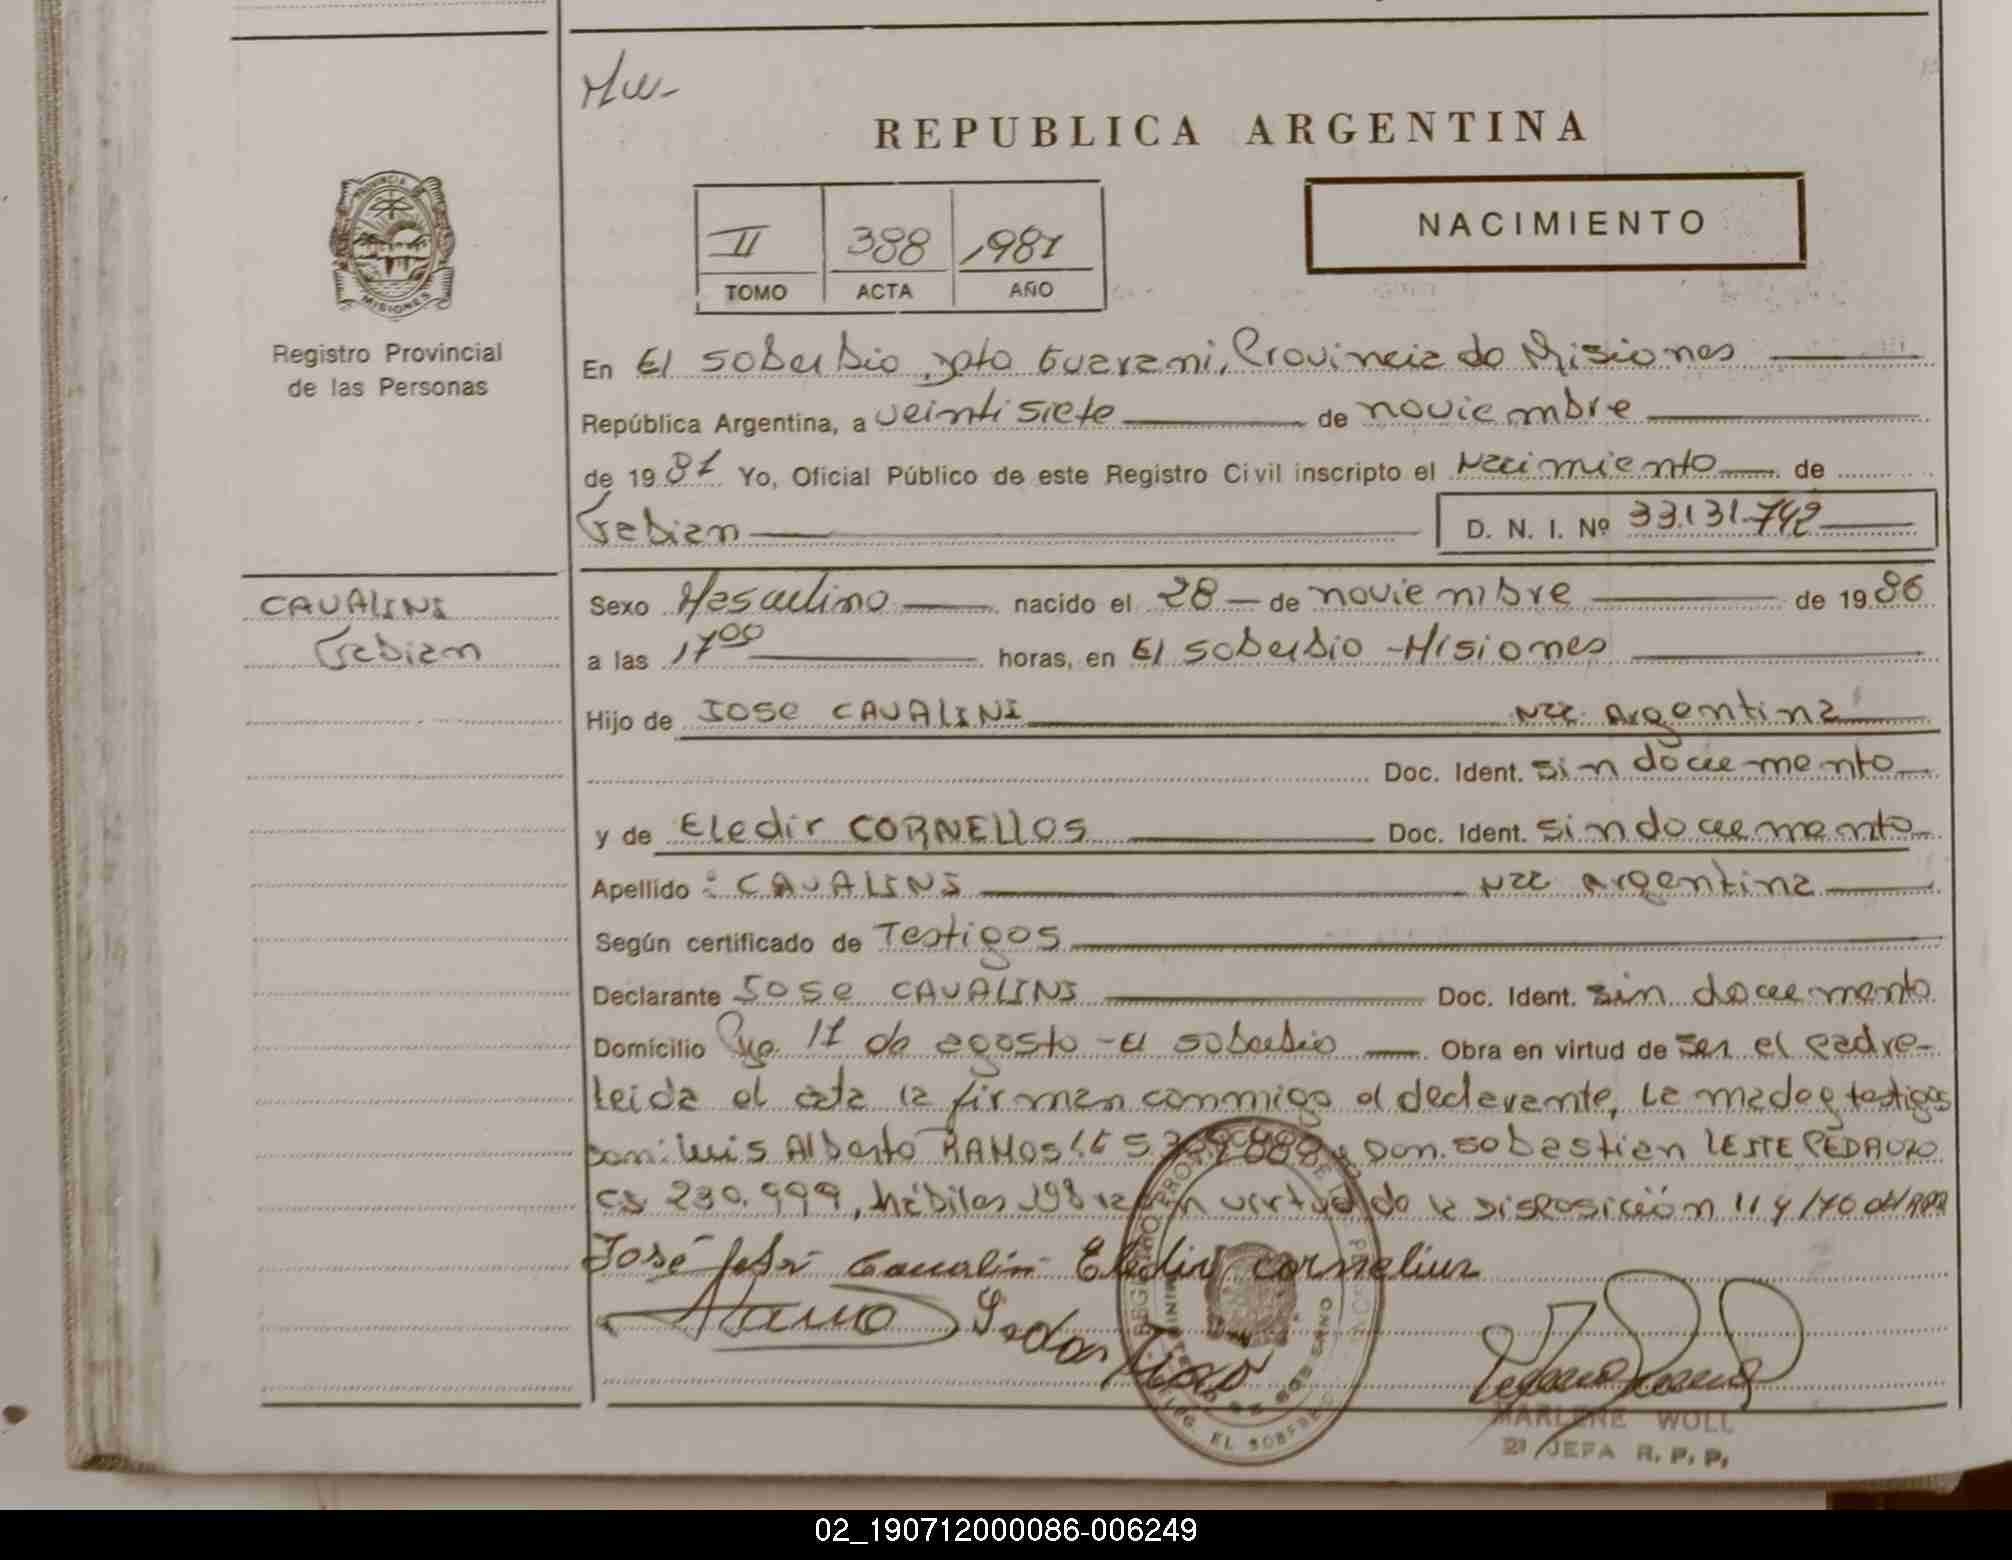 REPUBLICA ARGENTINA
NACIMIENTO
II 388 1987
TOMO ACTA AÑO
PROVINCIA DE
MISIONES
Registro Provincial
de las Personas
En El Soberbio, Dpto Guarani, Provincia de Misiones
República Argentina, a veintisiete de noviembre
de 1987 Yo, Oficial Público de este Registro Civil inscripto el Nacimiento de
Fabian D. N. I. Nº 33.131.742
CAVALINI
Fabian
Sexo Masculino nacido el 28 de noviembre de 1986
a las 17 00 horas, en El Soberbio - Misiones
Hijo de JOSE CAVALINI Nac Argentina
Doc. Ident. sin documento
y de Eledir CORNELLOS Doc. Ident. sin documento
Apellido : CAVALINI Nac argentina
Según certificado de Testigos
Declarante JOSE CAVALINI Doc. Ident. sin documento
Domicilio 17 de agosto - El Soberbio Obra en virtud de ser el padre-
leida el acta la firman conmigo el declarante, la madre y testigos
Don: Luis Alberto RAMOS y Don. Sobastian LESTE PEDROZO
CI 230.999, hábiles en virtud de la Disposición 114/70
José Cavalin Eledir Cornelius
EL SOBERBIO
MARLENE WOLL
JEFA R. P. P.
02_190712000086-006249